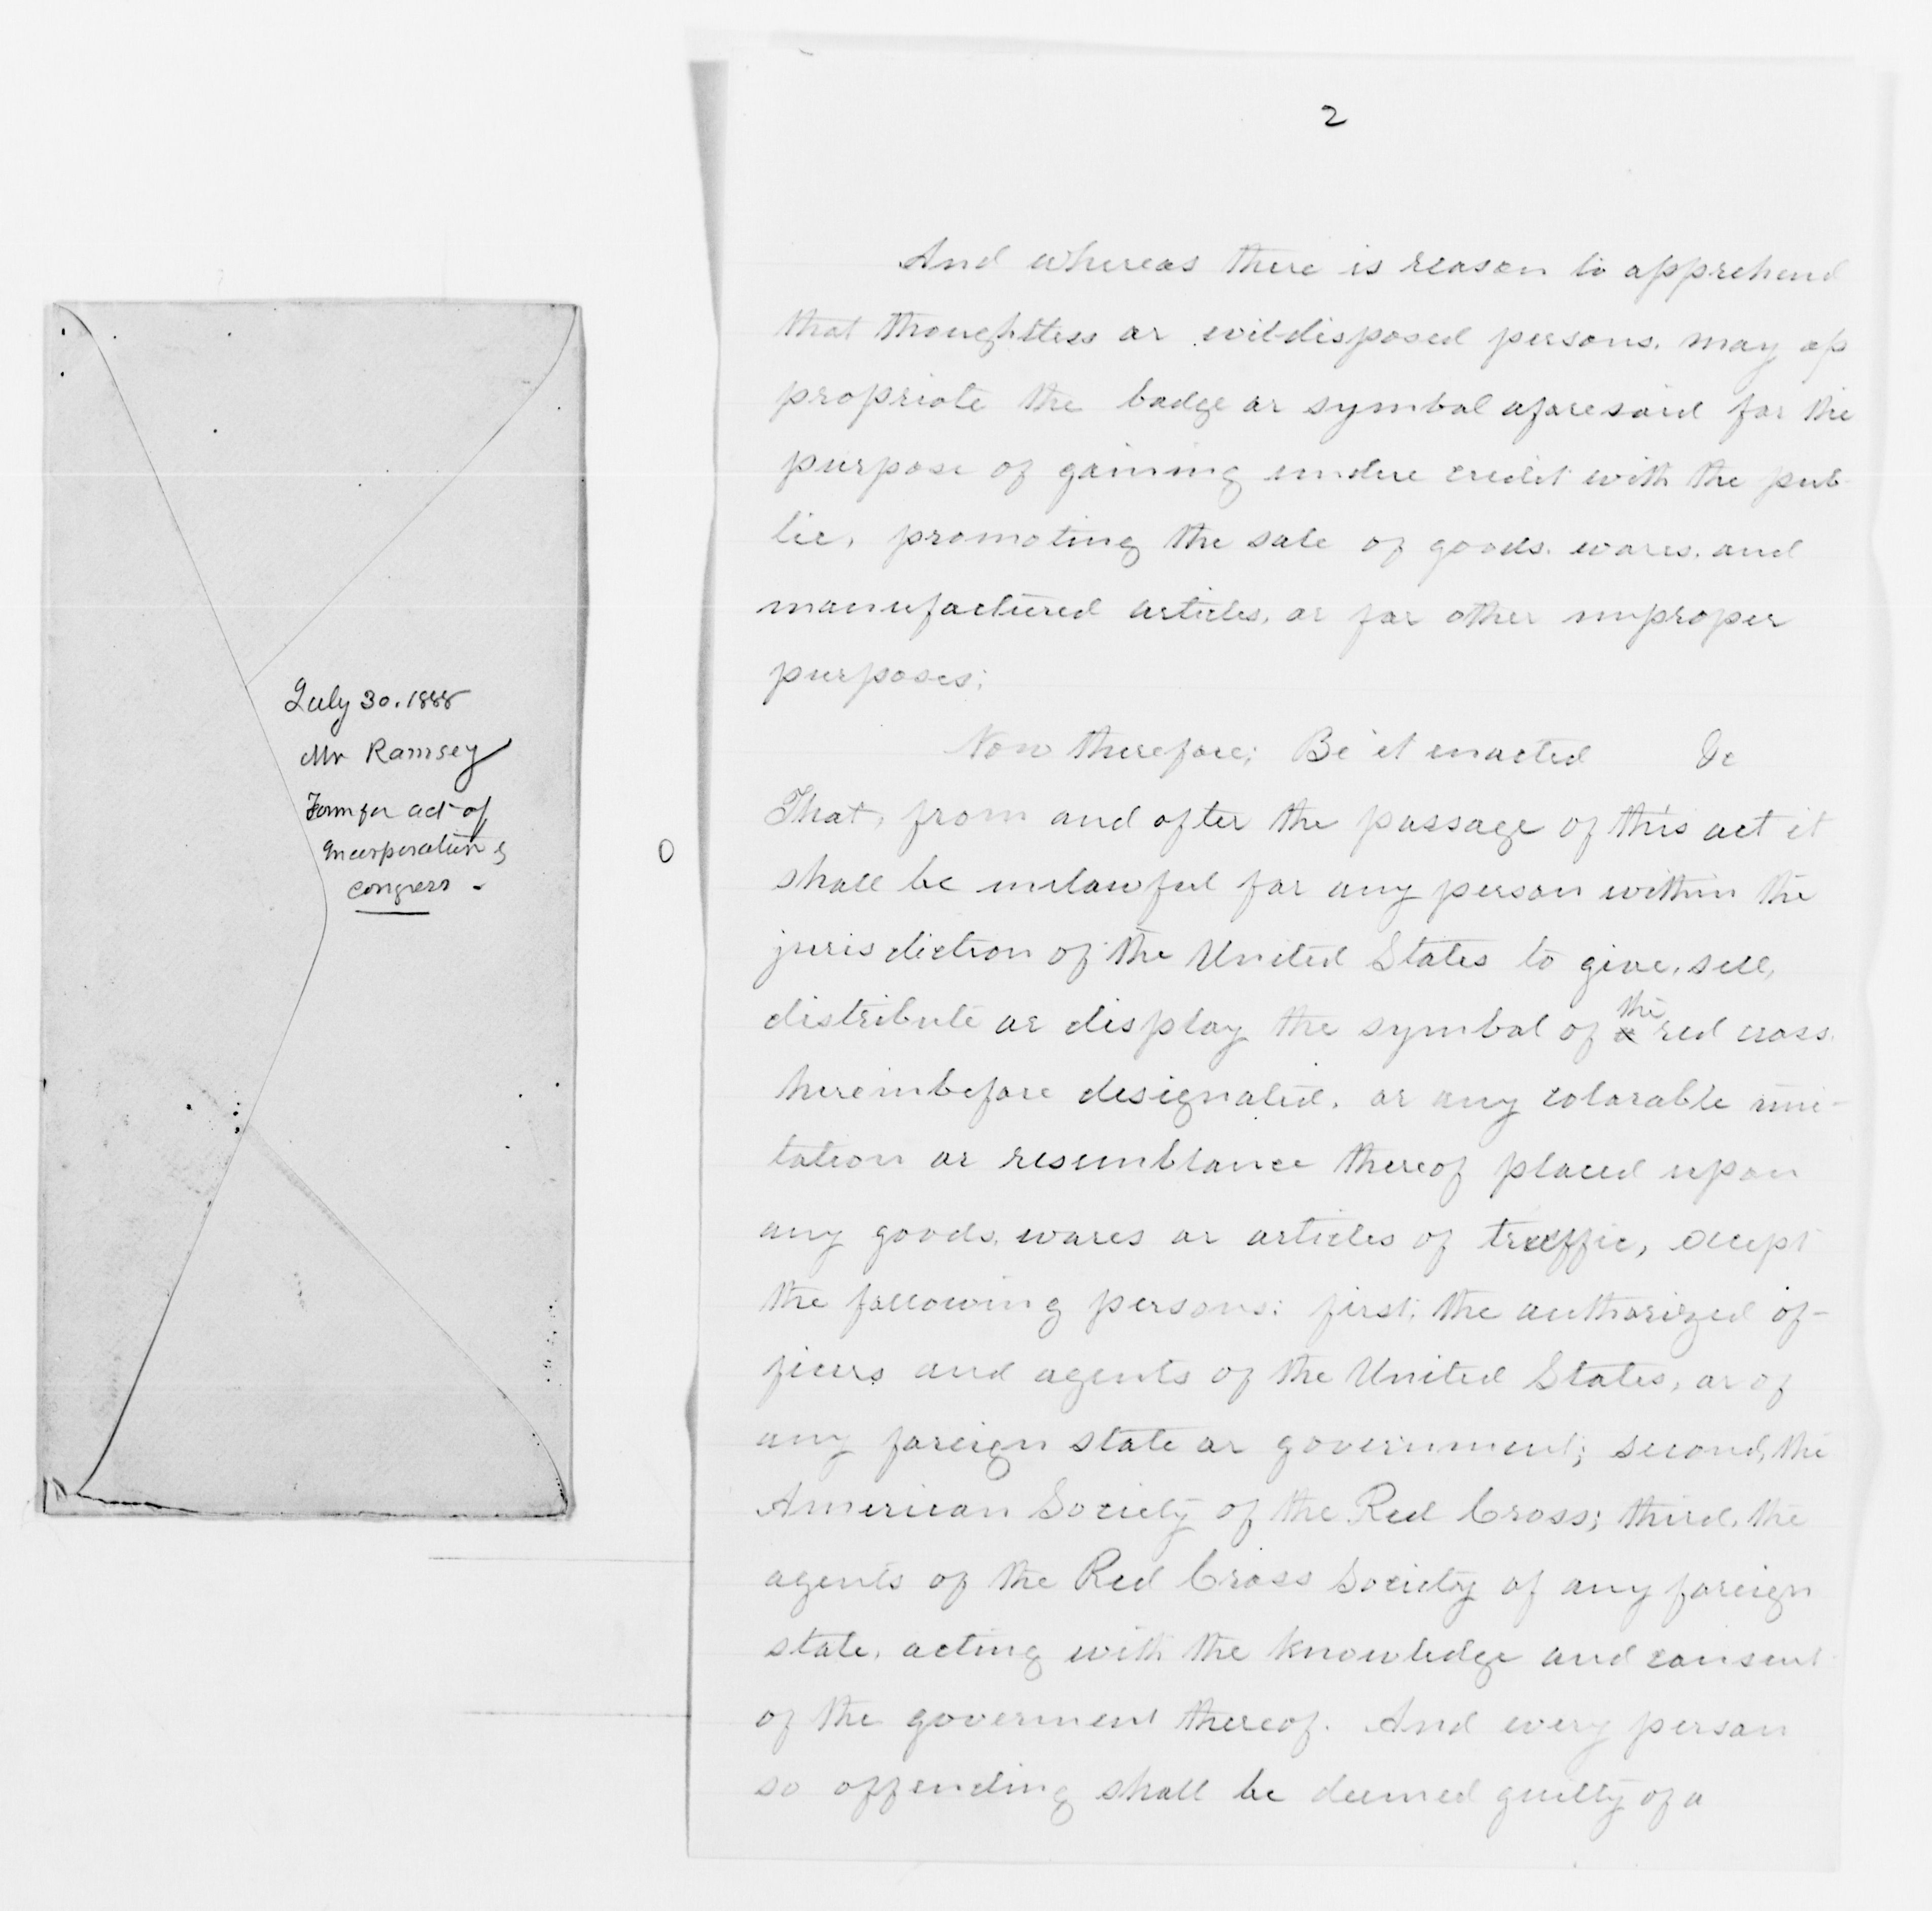 July 30. 1888
Mr Ramsey
Form for act of
Incorporation of
Congress -
2
And whereas there is reason to apprehend
that thoughtless or evil-disposed persons. may ap
propriate the badge or symbol aforesaid for the
purpose of gaining undue credit with the pub-
lic, promoting the sale of goods. wares. and
manufactured articles, or for other improper
purposes;
Now therefore; Be it enacted &c
That, from and after the passage of this act it
shall be unlawful for any person within the
jurisdiction of the United States to give, sell,
distribute or display the symbol of a the red cross.
hereinbefore designated. or any colorable imi-
tation or resemblance thereof placed upon
any goods. wares or articles of traffic, except
the following persons: first, the authorized of-
ficers and agents of the United States, or of
any foreign state or government; second, the
American Society of the Red Cross; third, the
agents of the Red Cross Society of any foreign
state, acting with the knowledge and consent
of the goverment thereof. And every person
so offending shall be deemed guilty of a